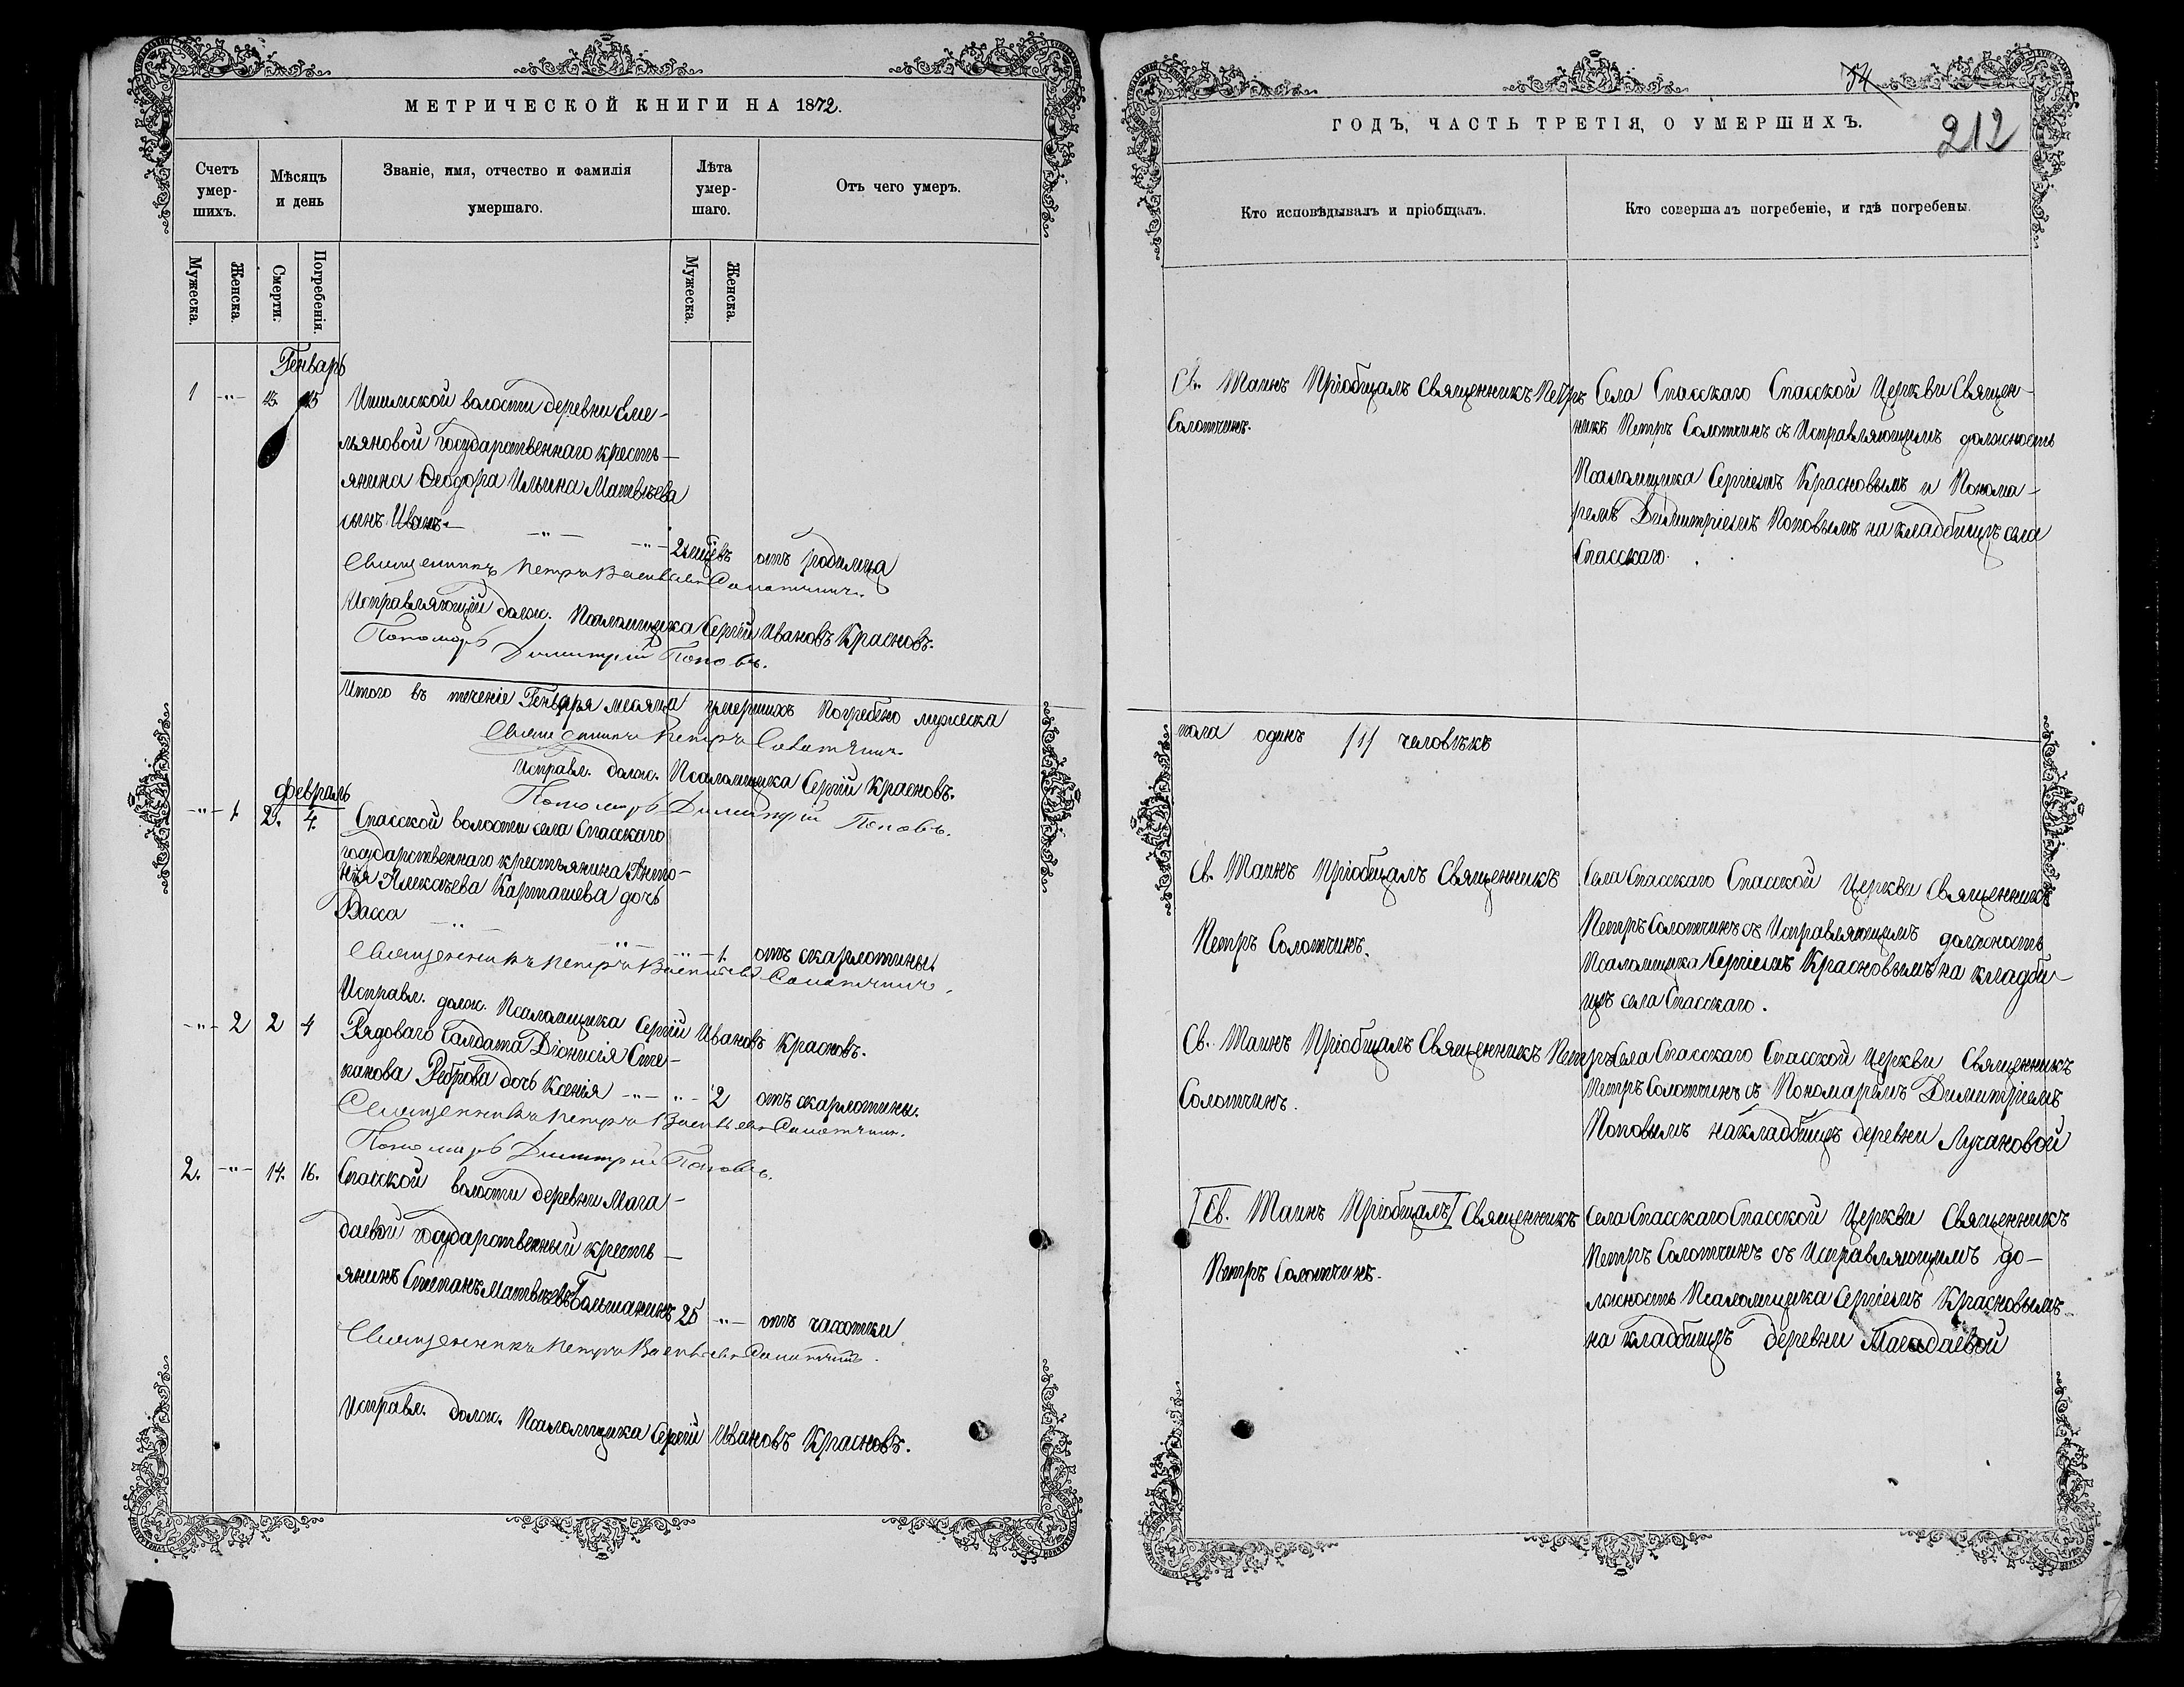 МЕТРИЧЕСКОЙ КНИГИ НА 1872.
Счетъ умершихъ.
Мѣсяцъ и день
Званіе, имя, отчество и фамилія умершаго.
Лѣта умершаго.
Отъ чего умеръ.
Мужеска.
Женска.
Смерти.
Погребенія.
Мужеска.
Женска.
Генварь
1 -"- 13. 15
Ишимской волости деревни Еме-
льяновой государственнаго кресть-
янина Ѳеодора Ильина Матвѣева
сынъ Иванъ. -"- -"- 2 мѣс. отъ родимца
Священникъ Петръ Васильевъ Солотчинъ.
Исправляющій долж. Псаломщика Сергій Ивановъ Красновъ.
Пономарь Димитрій Поповъ.
Итого въ теченіе Генваря месяца умершихъ Погребено мужеска
Священникъ Петръ Солотчинъ
Исправл. долж. Псаломщика Сергій Красновъ.
Пономарь Димитрій Поповъ.
Февраль
-"- 1. 2. 4.
Спасской волости села Спасскаго
государственнаго крестьянина Анто-
нія Алексѣева Карташева дочь
Васса -"-
-"- -"- 1. отъ скарлотины.
Священникъ Петръ Васильевъ Солотчинъ.
Исправл. долж. Псаломщика Сергій Ивановъ Красновъ.
-"- 2 2 4
Рядоваго Салдата Діонисія Сте-
панова Реброва дочь Ксенія -"- -"- 2 отъ скарлотины.
Священникъ Петръ Васильевъ Солотчинъ.
Пономарь Димитрій Поповъ.
2. -"- 14. 16.
Спасской волости деревни Мага-
даевой Государственный кресть-
янинъ Степанъ Матвѣевъ Большанинъ 25 -"- отъ чахотки
Священникъ Петръ Васильевъ Солотчинъ.
Исправл. долж. Псаломщика Сергій Ивановъ Красновъ.
ГОДЪ, ЧАСТЬ ТРЕТІЯ, О УМЕРШИХЪ.
212
Кто исповѣдывалъ и пріобщалъ.
Кто совершалъ погребеніе, и гдѣ погребены.
Св. Таинъ Пріобщалъ Священникъ Петръ
Солотчинъ.
Села Спасскаго Спасской Церкви Священ-
никъ Петръ Солотчинъ съ Исправляющимъ должность
Псаломщика Сергіемъ Красновымъ и Понома-
ремъ Димитріемъ Поповымъ на кладбищѣ села
Спасскаго.
пола одинъ /1/ человѣкъ
Св. Таинъ Пріобщалъ Священникъ
Петръ Солотчинъ.
Села Спасскаго Спасской Церкви Священникъ
Петръ Солотчинъ съ Исправляющимъ должность
Псаломщика Сергіемъ Красновымъ на кладби-
щѣ села Спасскаго.
Св. Таинъ Пріобщалъ Священникъ Петръ
Солотчинъ.
Села Спасскаго Спасской Церкви Священникъ
Петръ Солотчинъ съ Пономаремъ Димитріемъ
Поповымъ на кладбищѣ деревни Лучановой
[Св. Таинъ Пріобщалъ] Священникъ
Петръ Солотчинъ.
Села Спасскаго Спасской Церкви Священникъ
Петръ Солотчинъ съ Исправляющимъ до-
лжность Псаломщика Сергіемъ Красновымъ
на кладбищѣ деревни Магадаевой